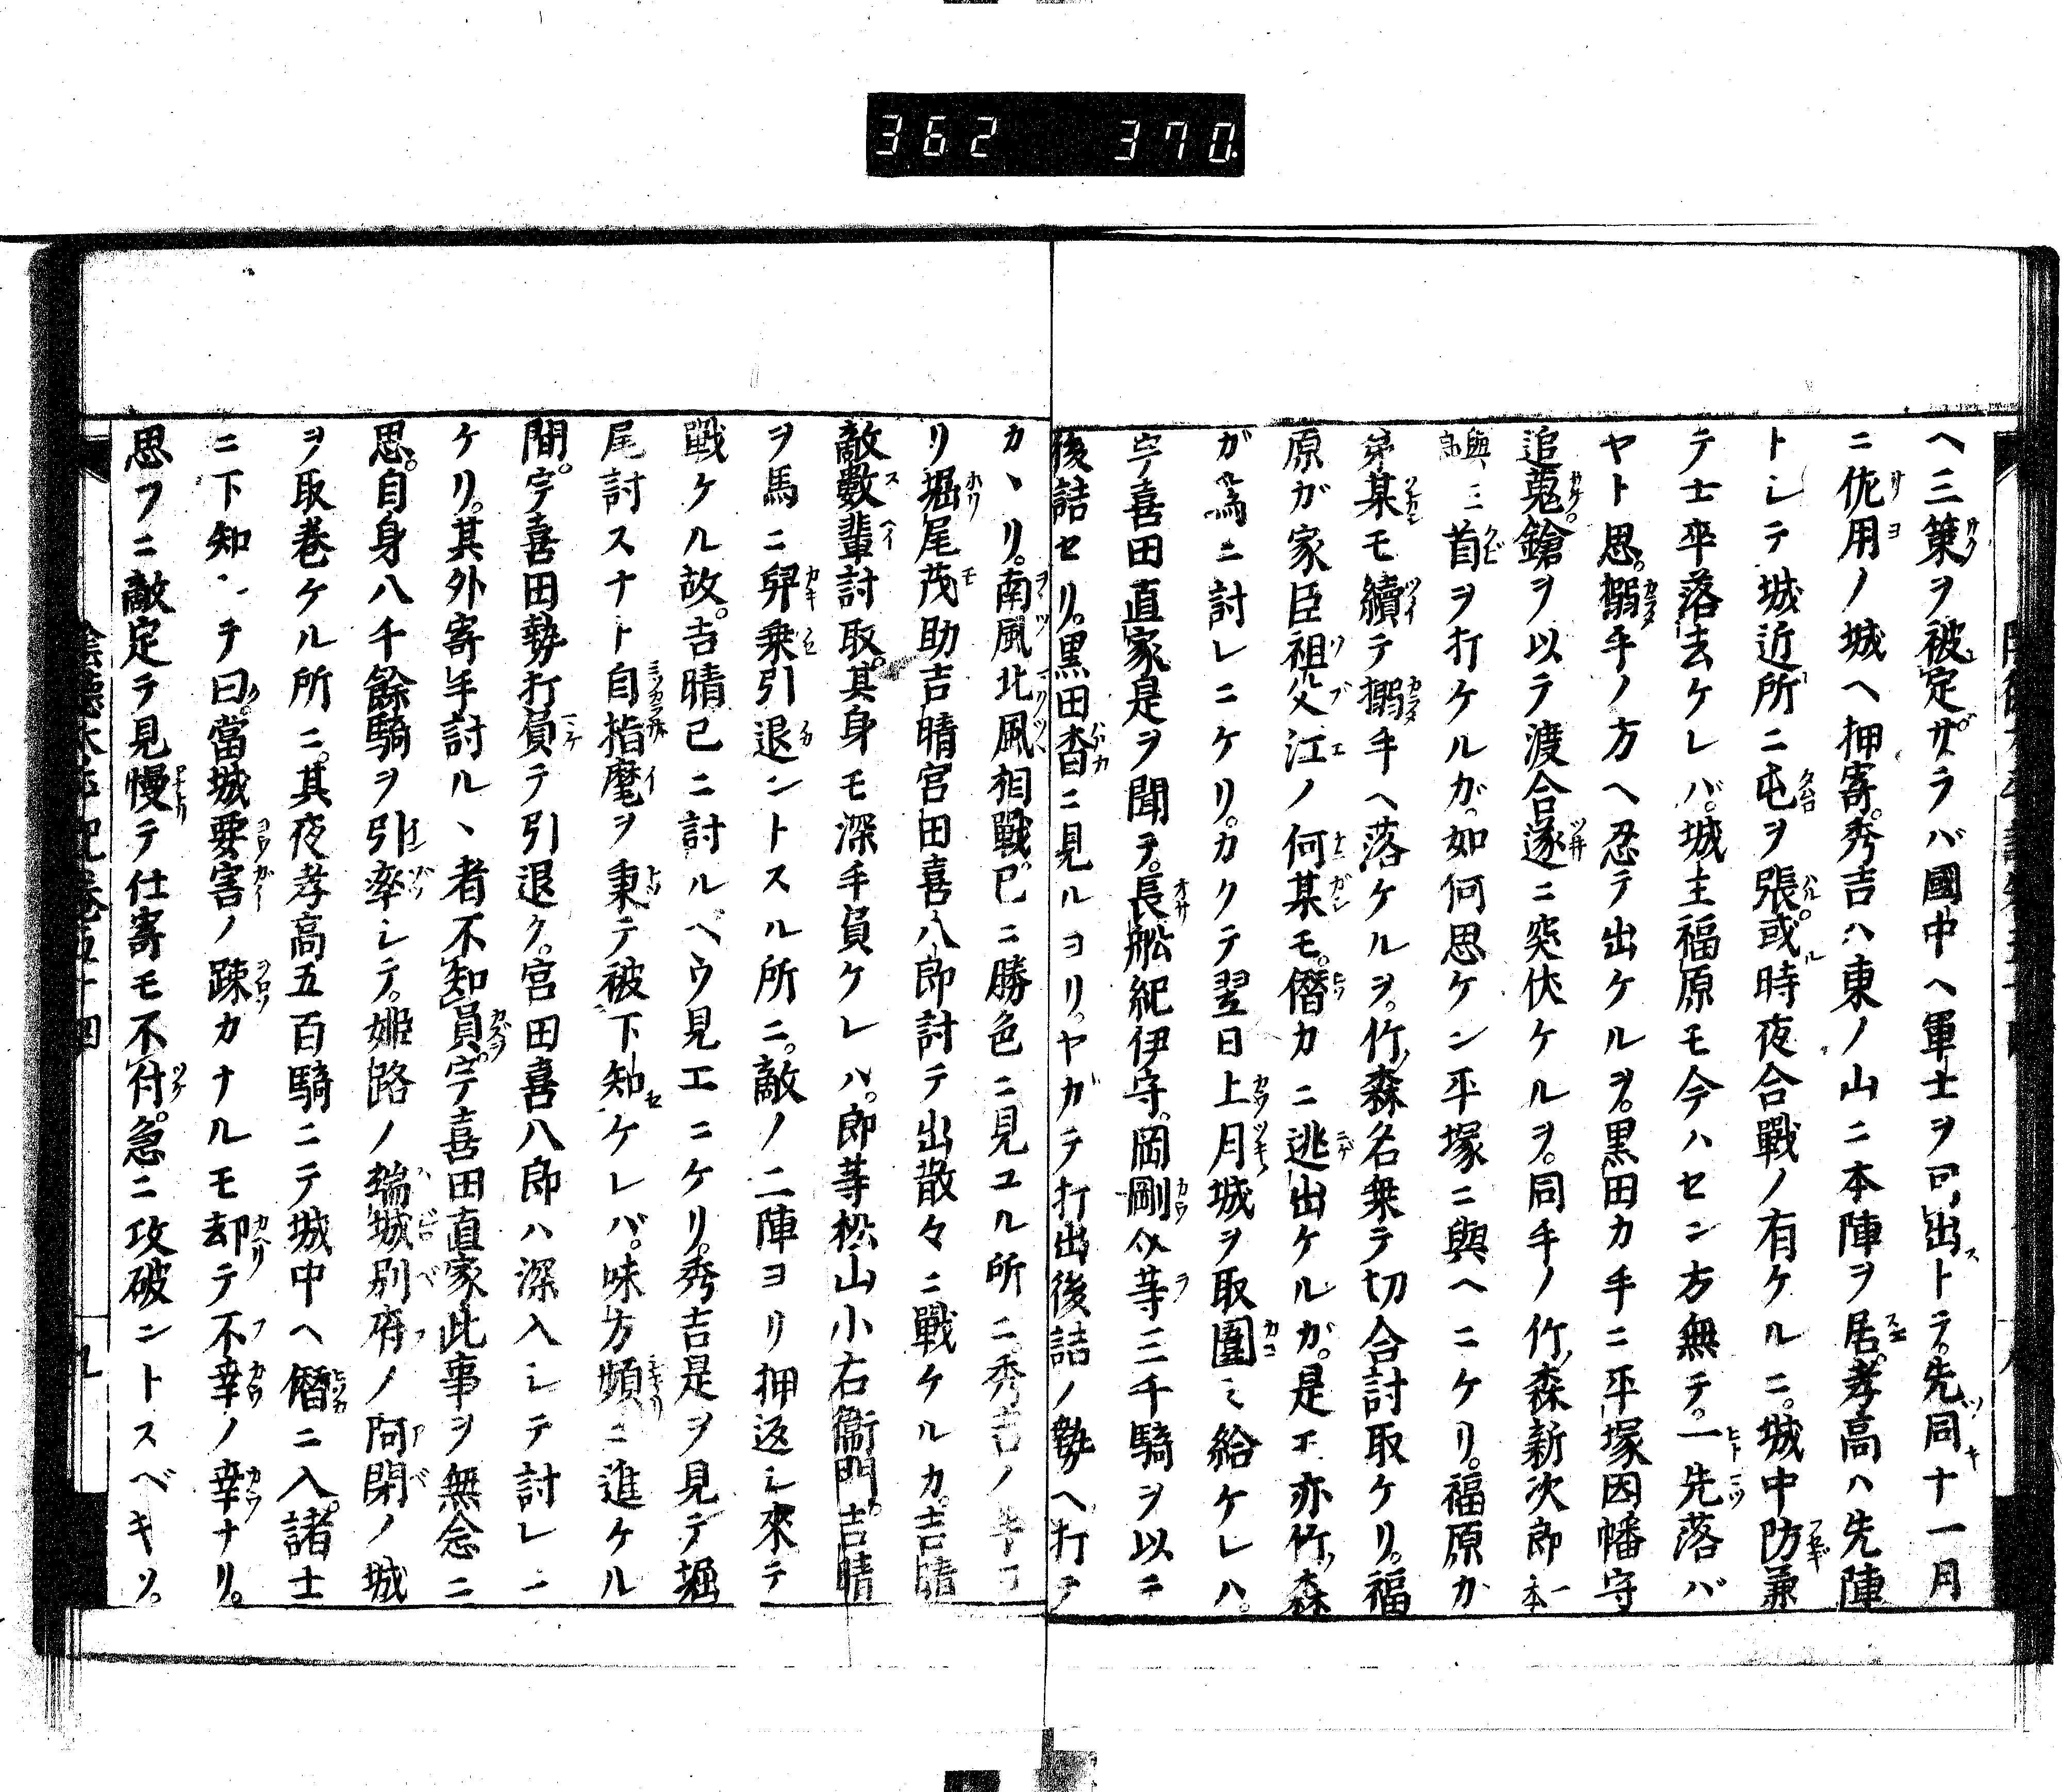 362 370.
ヘ三策ヲ被定ザラバ國中ヘ軍士ヲ可出トテ先同十一月
ニ佐用ノ城ヘ押寄。秀吉ハ東ノ山ニ本陣ヲ居。孝高ハ先陣
トシテ城近所ニ屯ヲ張。或時夜合戰ノ有ケルニ。城中防兼
テ士卒落去ケレバ。城主福原モ今ハセン方無テ。一先落バ
ヤト思。搦手ノ方ヘ忍テ出ケルヲ。黒田カ手ニ平塚因幡守
追蒐。鎗ヲ以テ渡合遂ニ突伏ケルヲ。同手ノ竹ノ森新次郎一本
與ニ首ヲ打ケルガ。如何思ケン平塚ニ與ヘニケリ。福原カ
弟某モ續テ搦手ヘ落ケルヲ。竹ノ森名乗テ切合討取ケリ。福
原ガ家臣祖父江ノ何某モ。僭カニ逃出ケルガ。是エ亦竹ノ森
ガ為ニ討レニケリ。カクテ翌日上月城ヲ取圍ミ給ケレハ。
宇喜田直家是ヲ聞テ。長舩紀伊守。岡剛介等三千騎ヲ以ニ
後詰セリ。黒田沓ニ見ルヨリ。ヤガテ打出後詰ノ勢ヘ打テ
カヽリ。南風北風相戰已ニ勝色ニ見ユル所ニ。秀吉ノ
リ堀尾茂助吉晴宮田喜八郎討テ出散々ニ戰ケルカ。吉晴
敵數輩討取。其身モ深手負ケレハ。郎等松山小右衞門。吉晴
ヲ馬ニ舁乗引退ントスル所ニ。敵ノ二陣ヨリ押返シ來テ
戰ケル故。吉晴已ニ討ルベウ見エニケリ。秀吉是ヲ見テ堀
尾討スナト自指麾ヲ秉テ被下知ケレバ。味方頻ニ進ケル
間。宇喜田勢打負テ引退ク。宮田喜八郎ハ深入シテ討レニ
ケリ。其外寄手討ルヽ者不知員。宇喜田直家此事ヲ無念ニ
思。自身八千餘騎ヲ引率シテ。姫路ノ端城別府ノ阿閉ノ城
ヲ取巻ケル所ニ。其夜孝高五百騎ニテ城中ヘ僭ニ入。諸士
ニ下知シテ曰。當城要害ノ疎カナルモ却テ不幸ノ幸ナリ。
思フニ敵定テ見慢テ仕寄モ不付。急ニ攻破ントスベキソ。